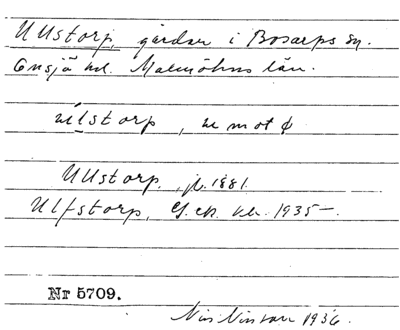 Ullstorp, gårdar i Bosarps sn.
Onsjö hd. Malmöhus län.
ulstorp, u mot ɸ
Ullstorp, jb. 1881.
Ulfstorp, G. ek. kb. 1935—.
Nr 5709.
Nils Nilsson 1936.